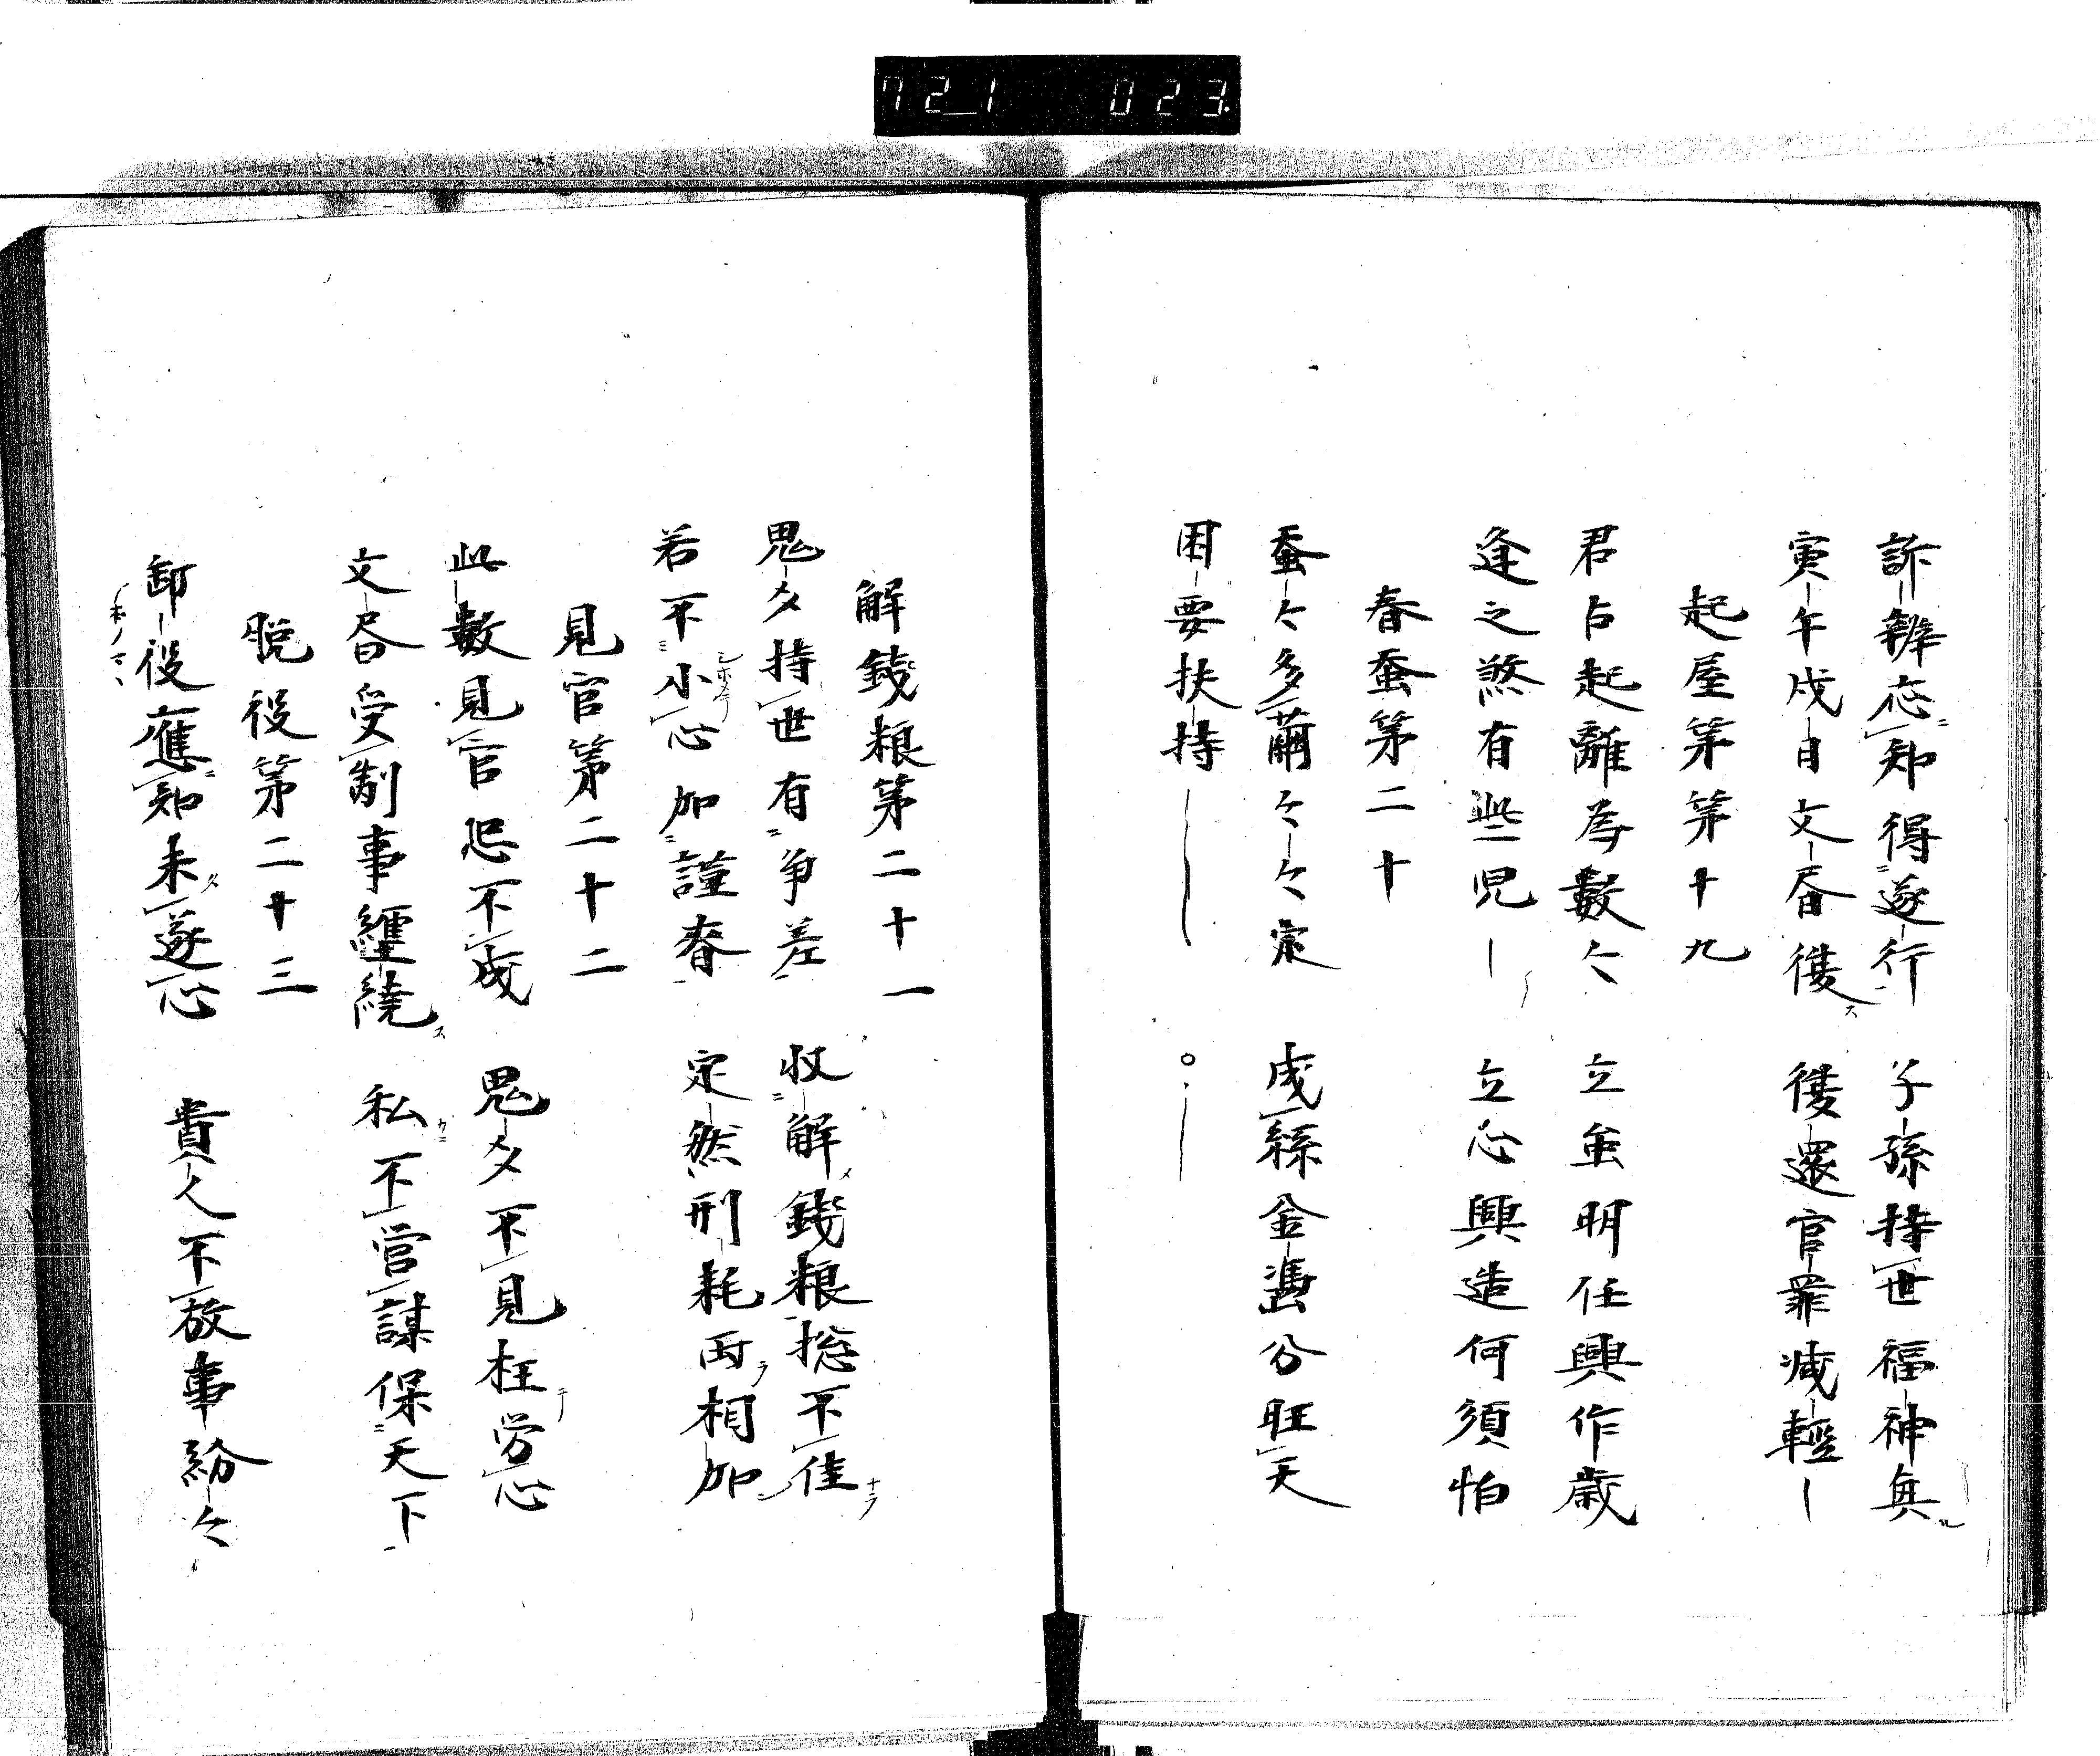 訴辨応知得遂行　子孫持世福神無
寅午戌日文昏獲　獲還官罪減輕
起屋第十九
君占起離為数々　立宝明任興作歳
逢之煞有些児　立心興造何須怕
春蚕第二十
蚕々多繭々々定　成絲金憑分旺天
困要扶持
解錢粮第二十一
鬼夕持世有争差　収解錢粮捴不佳
若不小心加謹春　定然刑耗両相加
見官第二十二
此数見官恐不成　鬼夕不見枉労心
文昏受制事纒繞　私不営謀保天下
脱役第二十三
卸役應知未遂心　貴人不放事紛々
本ノマヽ
72_1 023